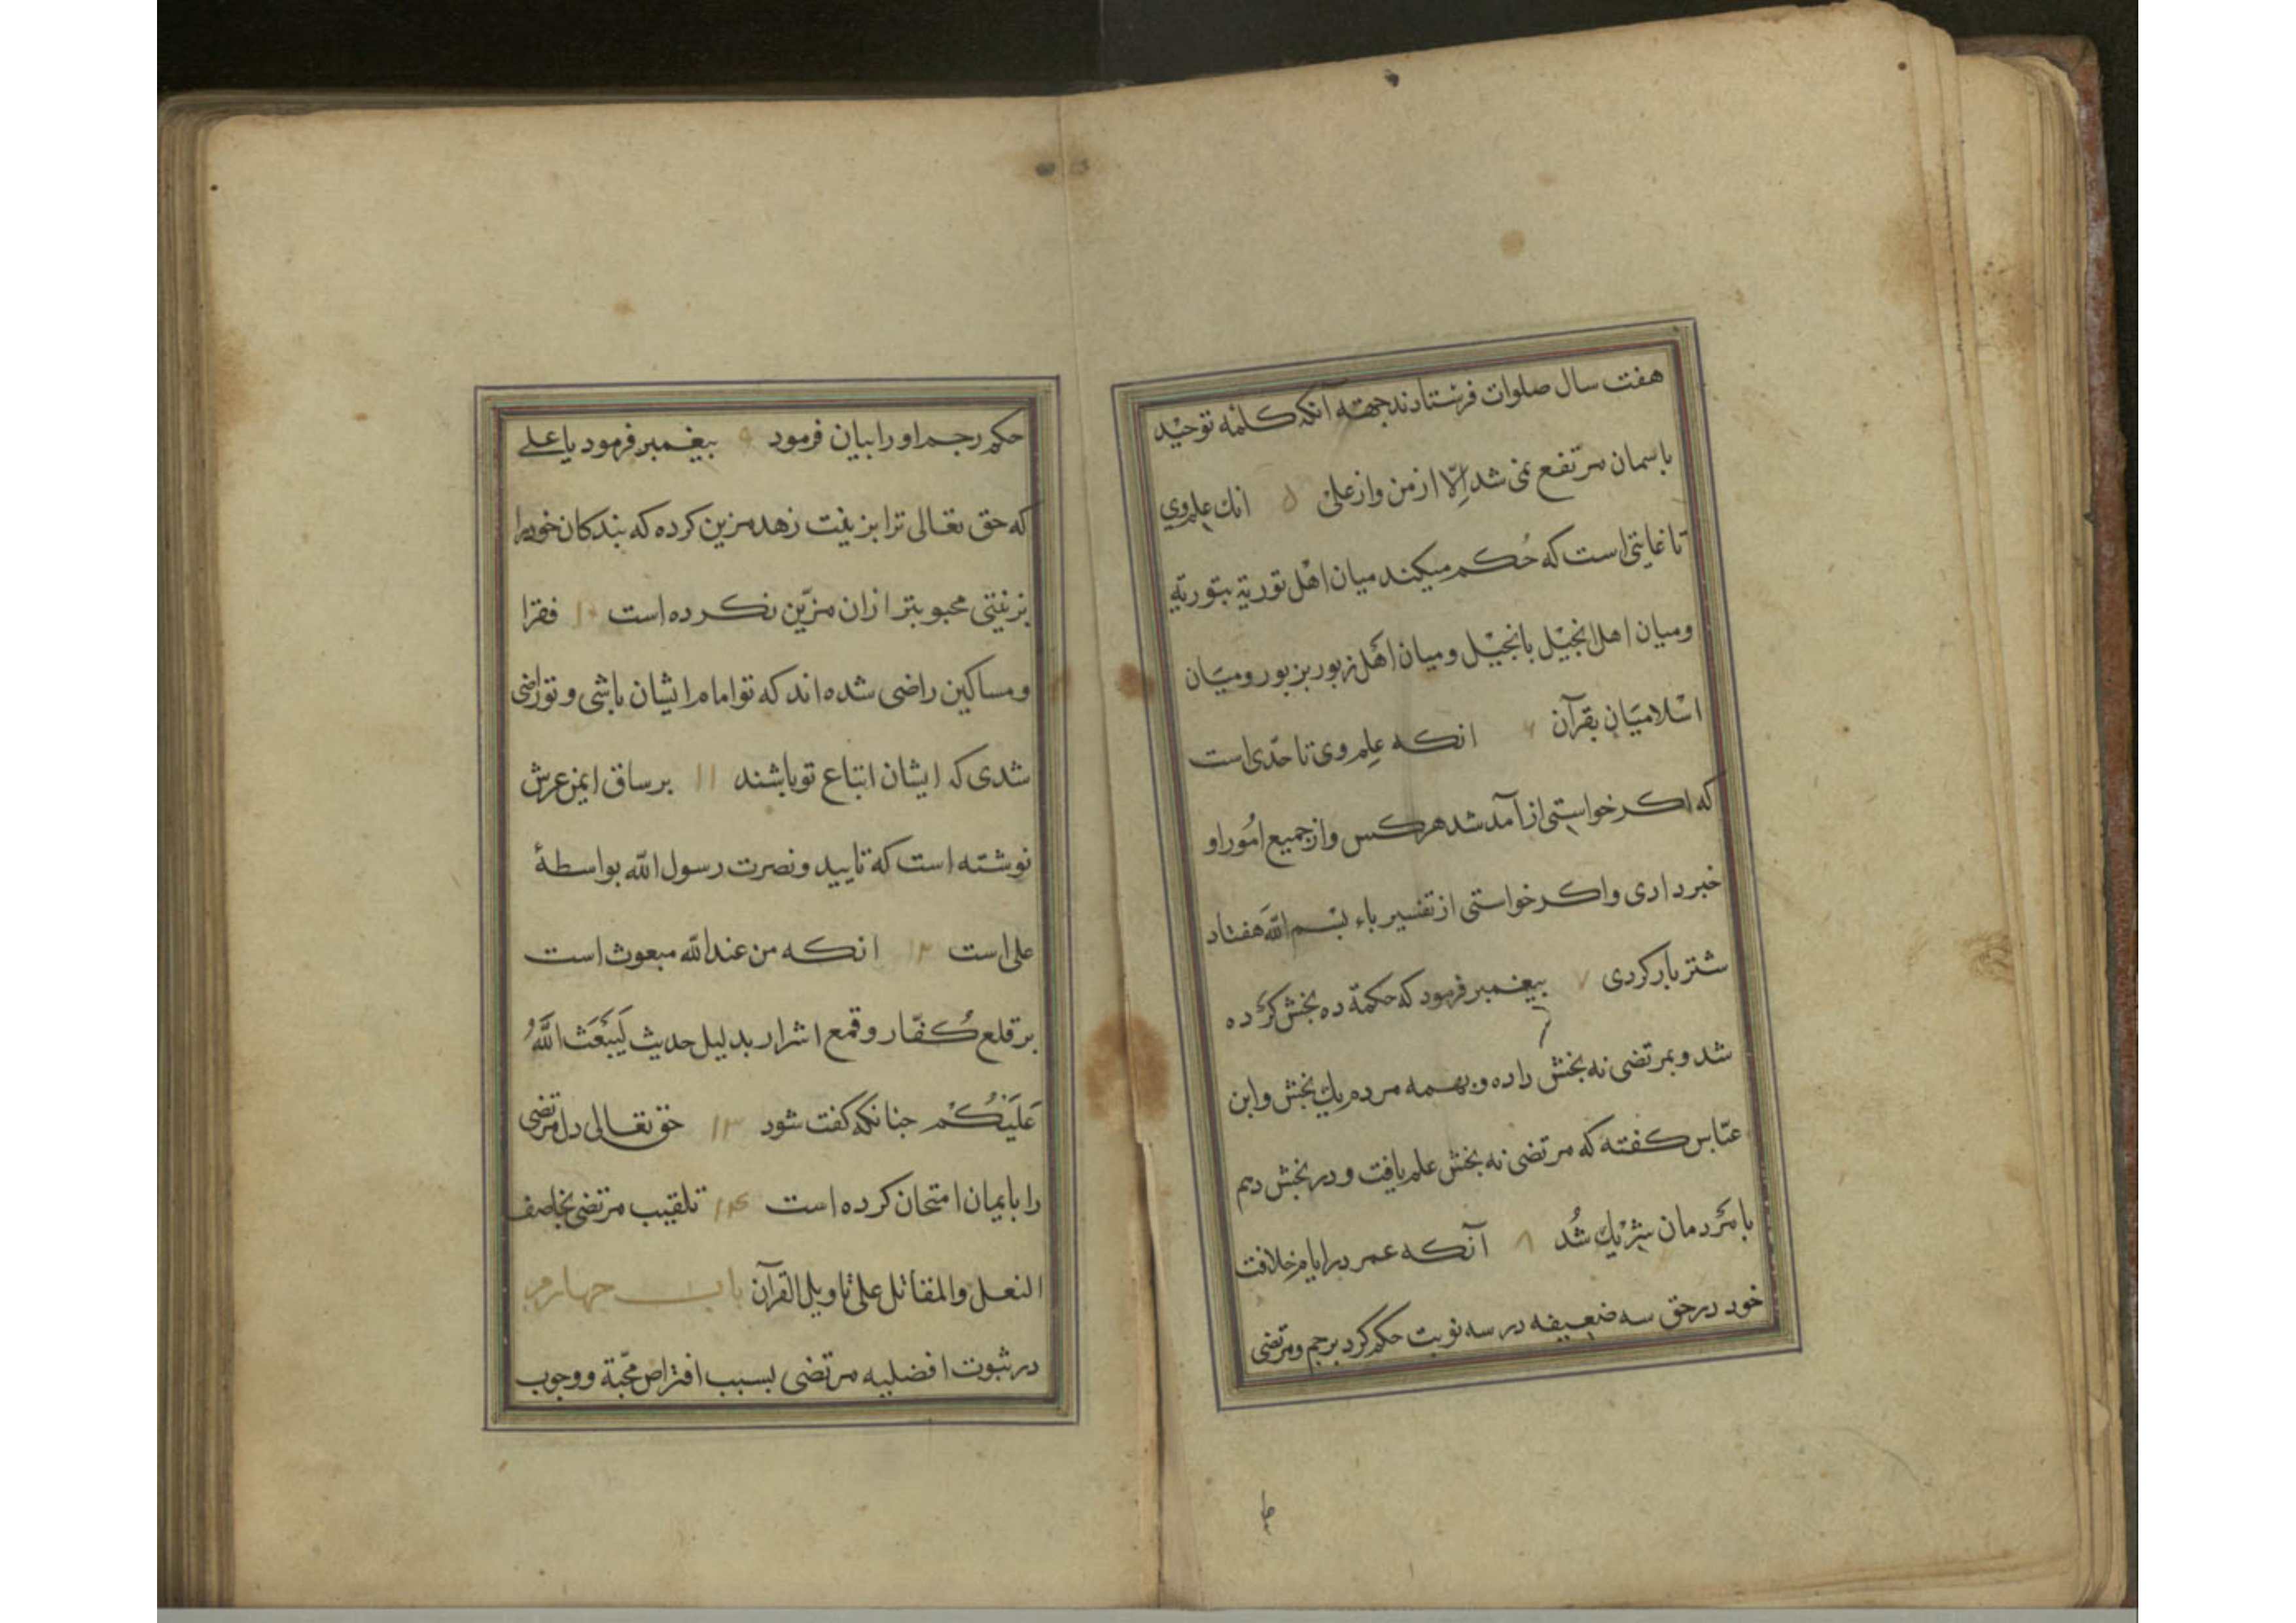 هفت سال صلوات فرستادند جهة آنکه کلمه توحید
باسمان مرتفع نمی شد اِلّا از من و از علی ۵ انک علم وی
تا غایتی است که حُکم میکند میان اهل توریة بتوریة
و میان اهل انجیل بانجیل و میان اهل زبور بزبور و میان
اسلامیان بقرآن ۶ انکه علم وی تا حدّی است
که اکر خواستی از آمد شد هرکس و از جمیع امُور او
خبر دادی و اکر خواستی از تفسیر باء بسم الله هفتاد
شتر بار کردی ۷ پیغمبر فرمود که حکمة ده بخش کرده
شد و بمرتضی نه بخش داده و بهمه مردم یک بخش و ابن
عبّاس کفته که مرتضی نه بخش علم یافت و در بخش دهم
با مردمان شریک شُد ۸ آنکه عمر در ایام خلافت
خود در حق سه ضعیفه در سه نوبت حکم کرد برجم و مرتضی
حکم رجم او را بیان فرمود ۹ پیغمبر فرمود یا علی
که حق تعالی ترا بزینت زهد مزین کرده که بندکان خود را
بزینتی محبوبتر ازان مزّین نکرده است ۱۰ فقرا
و مساکین راضی شده اند که تو امام ایشان باشی و تو راضی
شدی که ایشان اتباع تو باشند ۱۱ بر ساق ایمن عرش
نوشته است که تایید و نصرت رسول الله بواسطهٔ
علی است ۱۲ انکه من عند الله مبعوث است
بر قلع کُفّار و قمع اشرار بدلیل حدیث لَیَبْعَثَ اللَّهُ
عَلَیْکُمْ چنانکه کفت شود ۱۳ حق تعالی دل مرتضی
را بایمان امتحان کرده است ۱۴ تلقیب مرتضی بخاصف
النعل و المقاتل علی تاویل القرآن باب چهارم
در ثبوت افضلیه مرتضی بسبب افتراض محبّة و وجوب